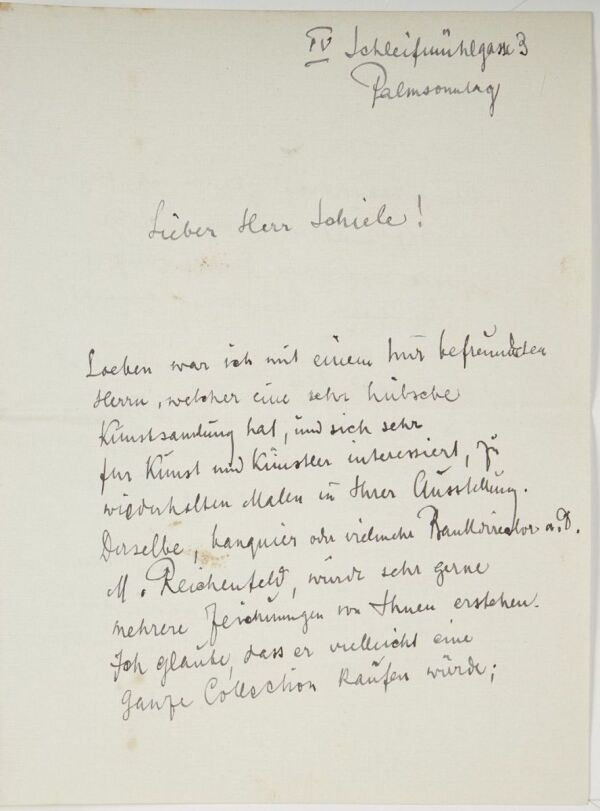 IV Schleifmühlgasse 3
Palmsonntag
Lieber Herr Schiele!
Soeben war ich mit einem mir befreundeten
Herrn, welcher eine sehr hübsche
Kunstsamlung hat, und sich sehr
für Kunst und Künstler interessiert, zu
wiederholten Malen in Ihrer Ausstellung.
Derselbe, banquier oder vielmehr Bankdirector a. D.
M. Reichenfeld, würde sehr gerne
mehrere Zeichnungen von Ihnen erstehen.
Ich glaube, dass er vielleicht eine
ganze Collection kaufen würde;